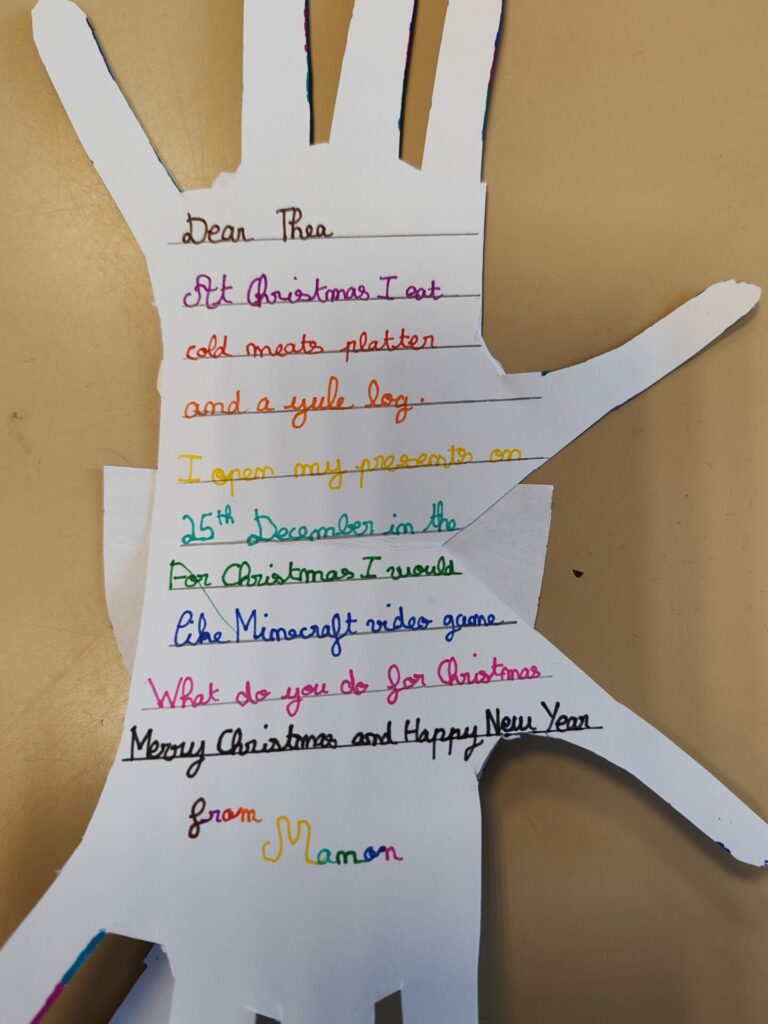 Dear Thea
At Christmas I eat
cold meats platter
and a yule log.
I open my presents on
25th December in the
For Christmas I would
like Minecraft video game
What do you do for Christmas
Merry Christmas and Happy New Year
from Manon